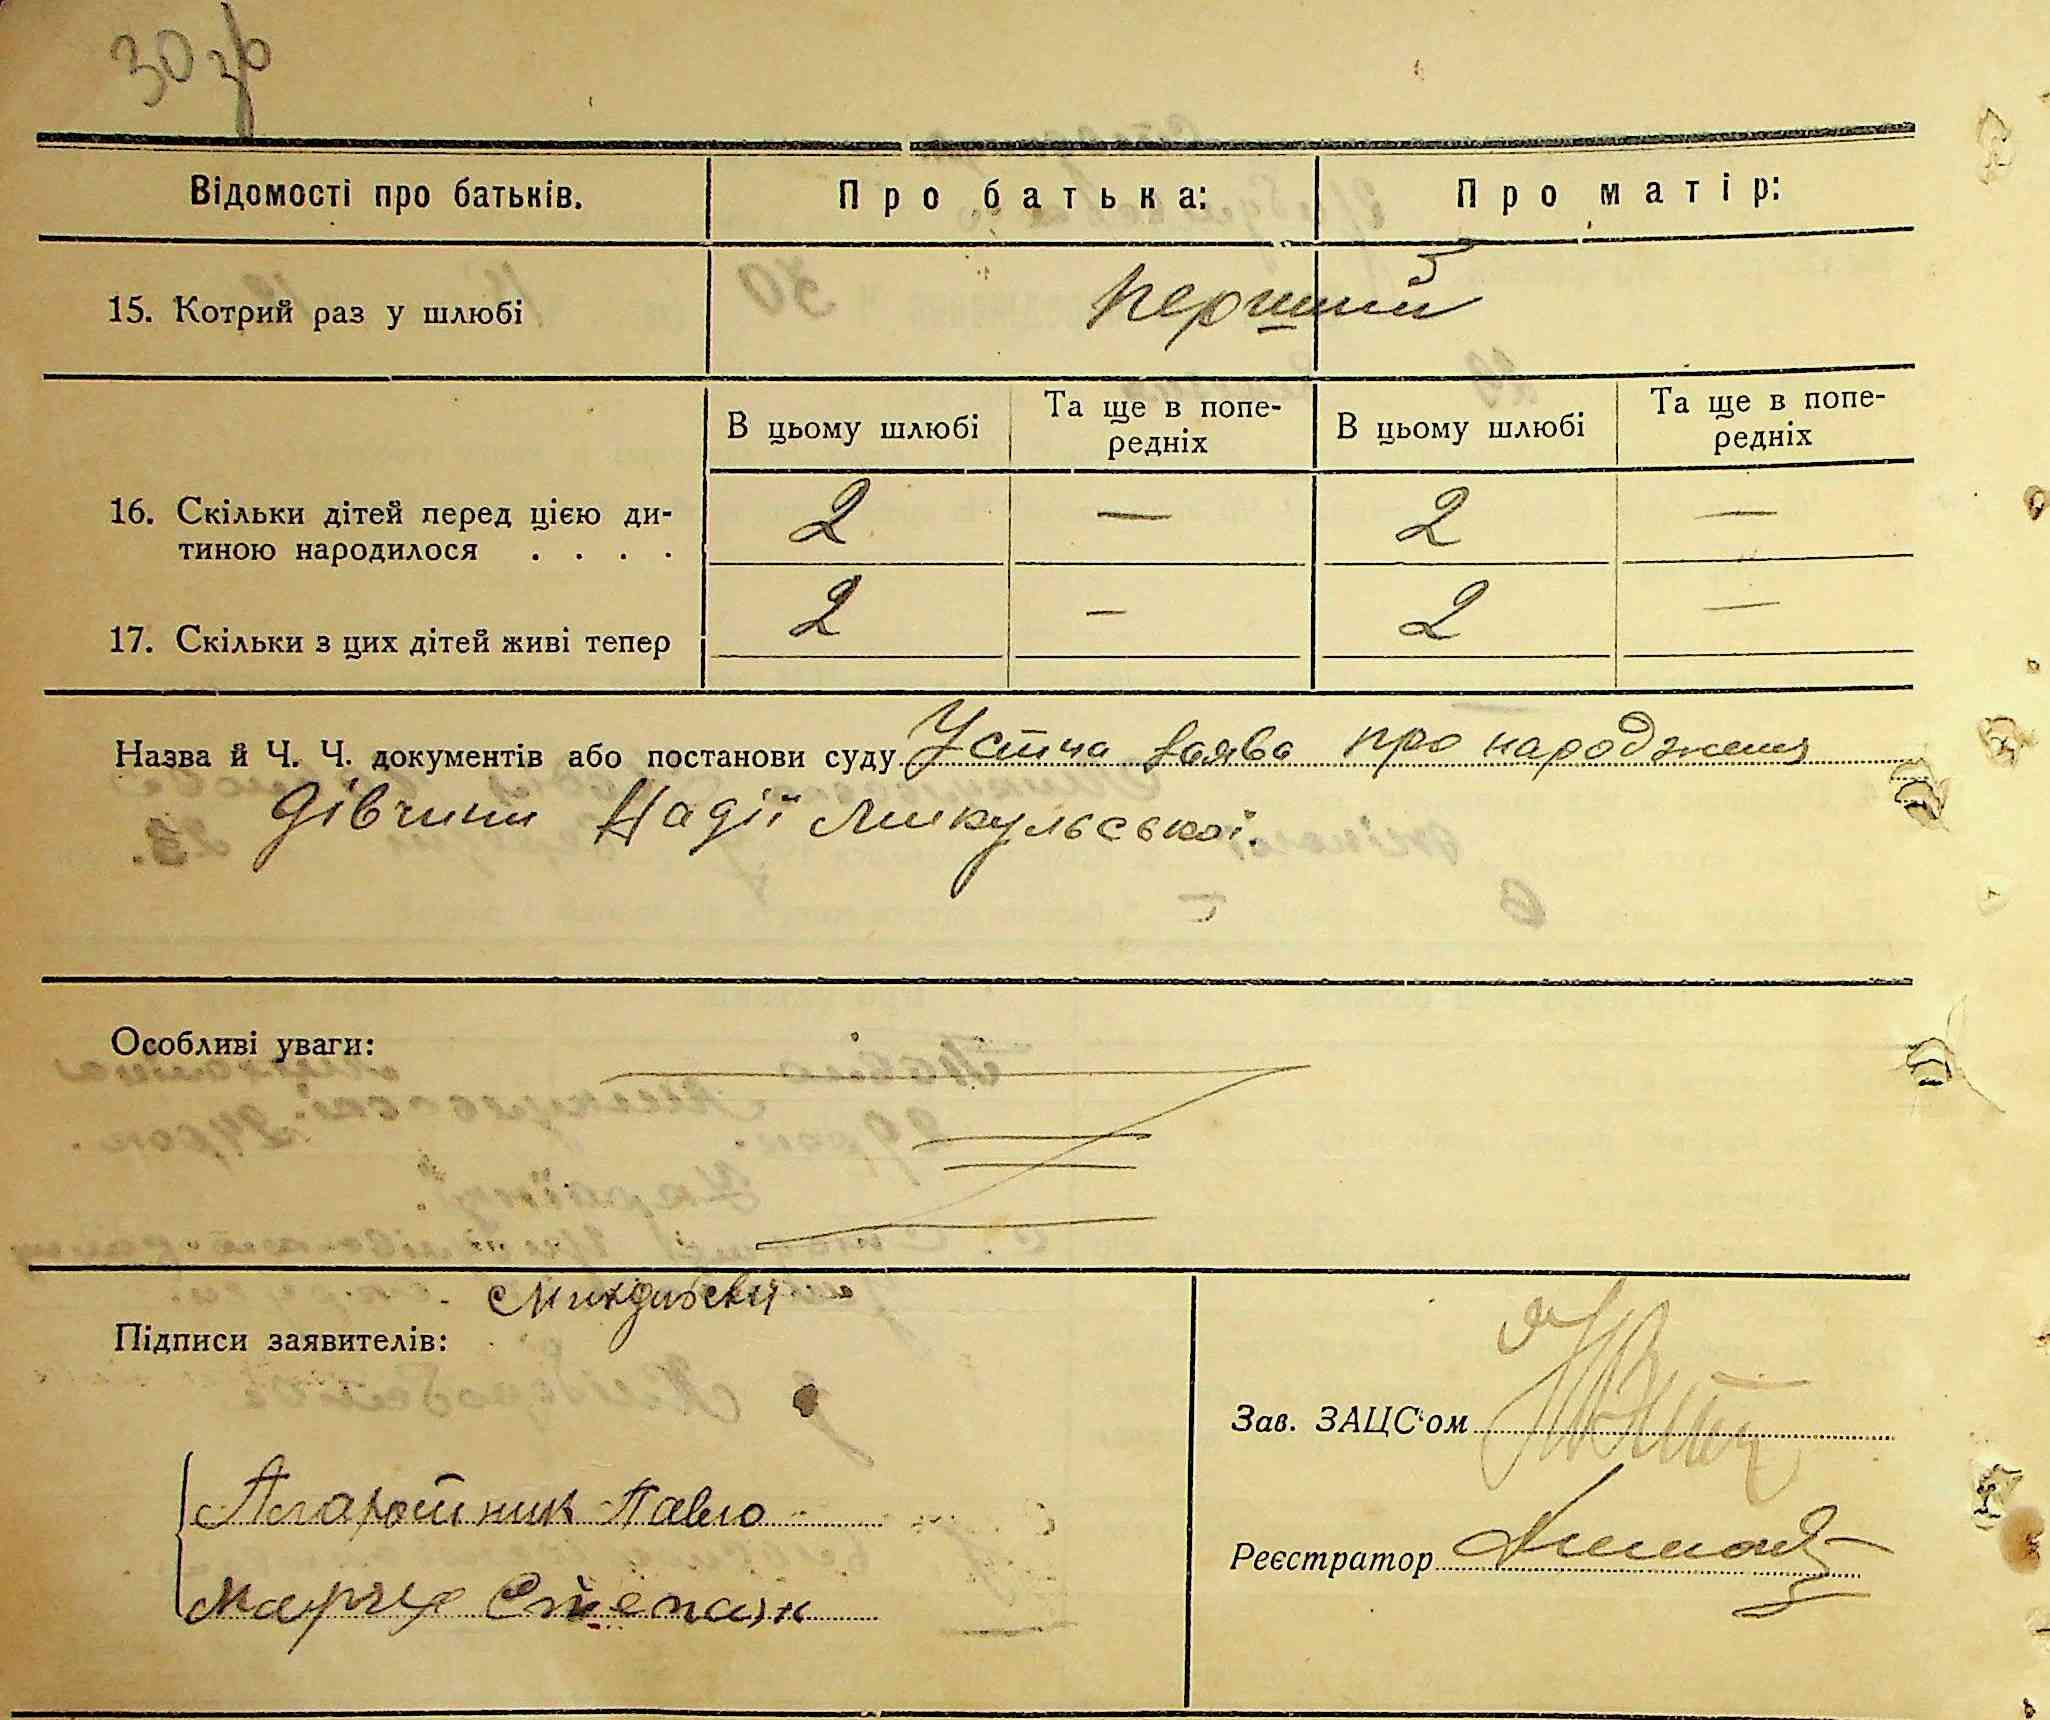 30 зр
Відомості про батьків.
Про батька:
Про матір:
15. Котрий раз у шлюбі
перший
В цьому шлюбі
Та ще в попе-
редніх
В цьому шлюбі
Та ще в попе-
редніх
16. Скільки дітей перед цією ди-
тиною народилося . . . .
2 — 2 —
17. Скільки з цих дітей живі тепер
2 — 2 —
Назва й Ч. Ч. документів або постанови суду Устна заява про народження
дівчини Надії Микульської.
Особливі уваги:
Підписи заявителів:
Павло
Степан
Зав. ЗАЦС'ом
Реєстратор